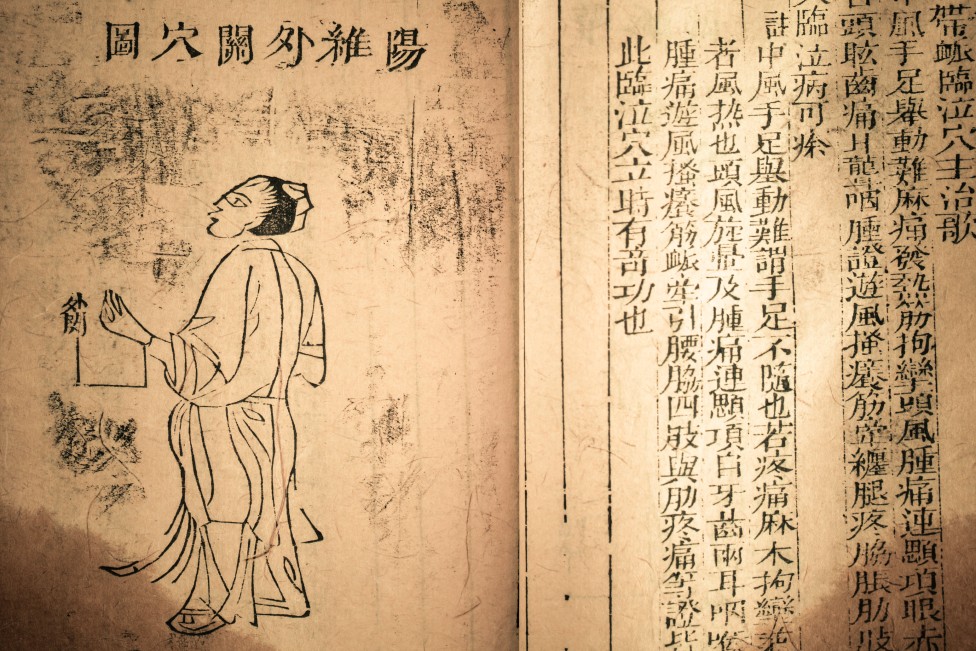 帶䘑臨泣穴主治歌
中風手足舉動難麻痛發熱筋拘攣頭風腫痛連顋項眼赤
頭眩齒痛耳聾咽腫證遊風搔癢筋牽纏腿疼脇脹肋肢
臨泣病可痊
註中風手足舉動難謂手足不隨也若疼痛麻木拘攣
者風热也頭風旋暈及腫痛連顋項目牙齒兩耳咽喉
腫痛遊風搔癢筋䘑牽引腰脇四肢與肋疼痛等證皆
此臨泣穴立時有奇功也
陽維外關穴圖
外關